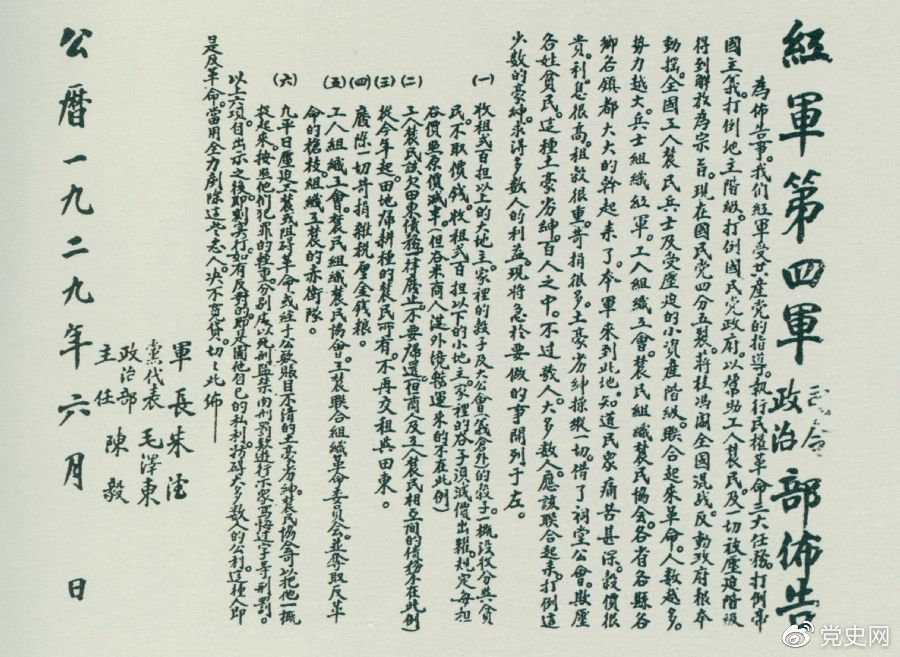 紅軍第四軍司令政治部佈告
為佈告事。我們紅軍受共產党的指導。執行民權革命三大任務。打倒帝
國主義。打倒地主階級。打倒國民党政府。以幫助工人農民。及一切被壓迫階級
得到解放為宗旨。現在國民党四分五裂。蔣桂馮閻全國混战。反動政府根本
動搖。全國工人農民兵士及受壓迫的小資產階級。聯合起來革命。人數越多。
勢力越大。兵士組織紅軍。工人組織工會。農民組織農民協会。各省各縣各
鄉各鎮都大大的幹起来了。本軍來到此地。知道民眾痛苦甚深。穀價很
貴。利息很高。租穀很重。苛捐很多。土豪劣紳操縱一切。借了祠堂公會。欺壓
各姓貧民。這種土豪劣紳。百人之中。不过数人。大多数人。應該联合起来。打倒這
少数的豪紳。求得多数人的利益。現將急於要做的事開列于左。
(一) 收租弍百担以上的大地主。家裡的穀子及大公會(義倉外)的穀子。一概沒收分與貧
民。不取價钱。收租弍百担以下的小地主。家裡的谷子須減價出糶。規定每担
谷價照原價減半。(但谷米商人從外境轉運来的不在此例)
(二) 工人農民該欠田東債務。一律廢止。不要歸還。(但商人及工人農民相互間的債務不在此例)
(三) 從今年起。田地歸耕種的農民所有。不再交租與田東。
(四) 廢除一切苛捐雜税厘金钱粮。
(五) 工人組織工會。農民組織農民協會。工農联合組織革命委員会。並奪取反革
命的槍枝組織工農的赤衛隊。
(六) 凡平日壓迫工農或阻碍革命或経手公款賬目不清的土豪劣紳。農民協會可以把他一概
捉起來。按照他们犯罪的輕重。分别處以死刑監禁肉刑罰款遊行示家寫悔过字等刑罰。
以上六項自出示之後。即刻实行。如有反對的。即是圖他自己的私利。妨碍大多数人的公利。這種人即
是反革命。當用全力剷除這些惡人。决不寬貸。切切此佈
軍長 朱德
党代表 毛澤東
政治部主任 陳毅
公曆一九二九年六月 日
党史网